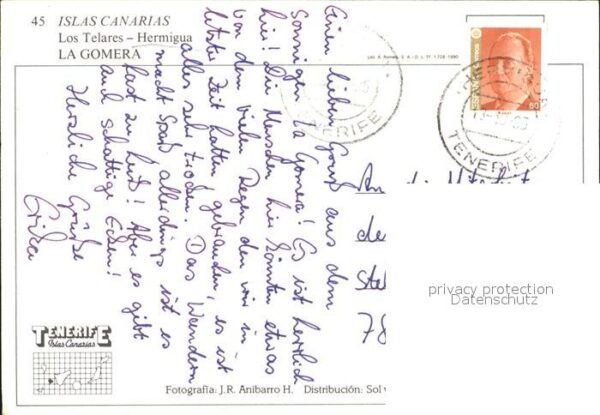 45 ISLAS CANARIAS
Los Telares – Hermigua
LA GOMERA
Einen lieben Gruß aus dem
sonnigen La Gomera! Es ist herrlich
hier! Die Menschen hier könnten etwas
von dem vielen Regen den wir in
letzter Zeit hatten gebrauchen, es ist
alles sehr trocken. Das Wandern
macht Spaß allerdings ist es
fast zu heiß! Aber es gibt
auch schattige Ecken!
Herzliche Grüße
Erika
An die
de
Ste
78
TENERIFE
TENERIFE
60
privacy protection
Datenschutz
TENERIFE
Islas Canarias
Fotografía: J.R. Anibarro H. Distribución: Sol